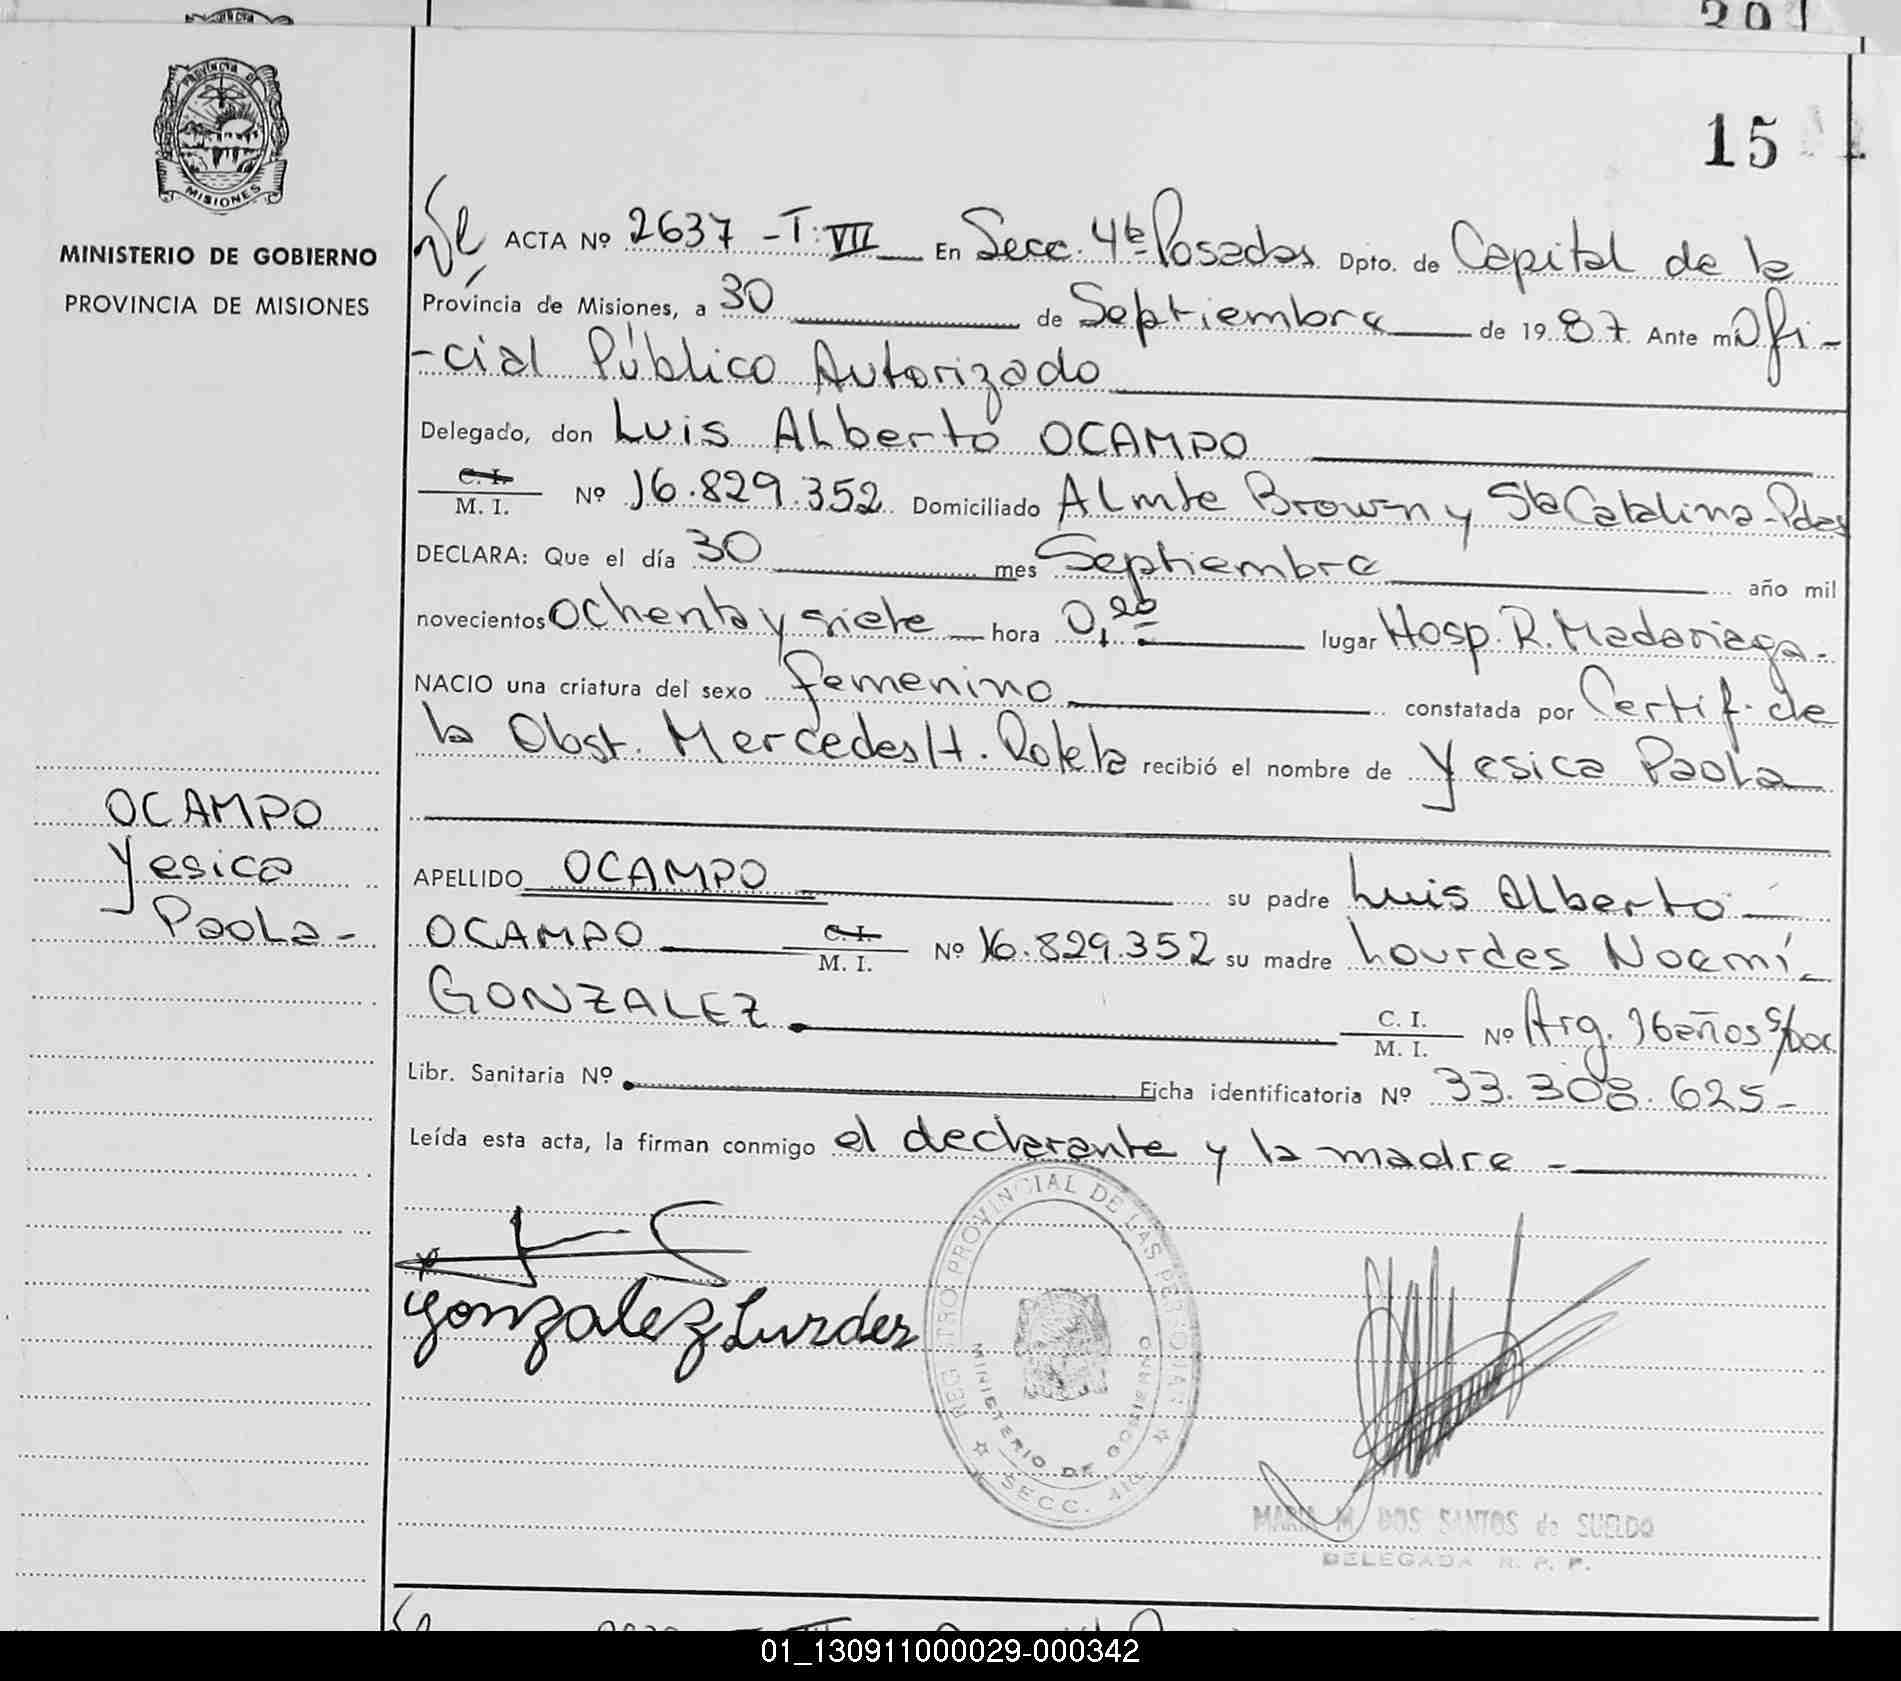 PROVINCIA DE
MISIONES
MINISTERIO DE GOBIERNO
PROVINCIA DE MISIONES
15
ACTA Nº 2637 - T: VII En Secc. 4ta Posadas Dpto. de Capital de la
Provincia de Misiones, a 30 de Septiembre de 1987. Ante mi Ofi-
-cial Público Autorizado
Delegado, don Luis Alberto OCAMPO
C. I.
M. I. Nº 16.829.352 Domiciliado Almte Brown y Sta Catalina - Pdas
DECLARA: Que el día 30 mes Septiembre año mil
novecientos ochenta y siete hora 0,20 lugar Hosp. R. Madariaga-
NACIO una criatura del sexo femenino constatada por Certif. de
la Obst. Mercedes H. recibió el nombre de Yesica Paola
OCAMPO
Yesica
Paola-
APELLIDO OCAMPO su padre Luis Alberto
OCAMPO C. I. M. I. Nº 16.829.352 su madre Lourdes Noemí
GONZALEZ C. I. M. I. Nº Arg. 16 años s/Doc
Libr. Sanitaria Nº Ficha identificatoria Nº 33.308.625-
Leída esta acta, la firman conmigo el declarante y la madre -
Gonzalez Lurdes
REGISTRO PROVINCIAL DE LAS PERSONAS
MINISTERIO DE GOBIERNO
SECC. 4ta
MARIA M. DOS SANTOS de SUELDO
DELEGADA R. P. P.
01_130911000029-000342